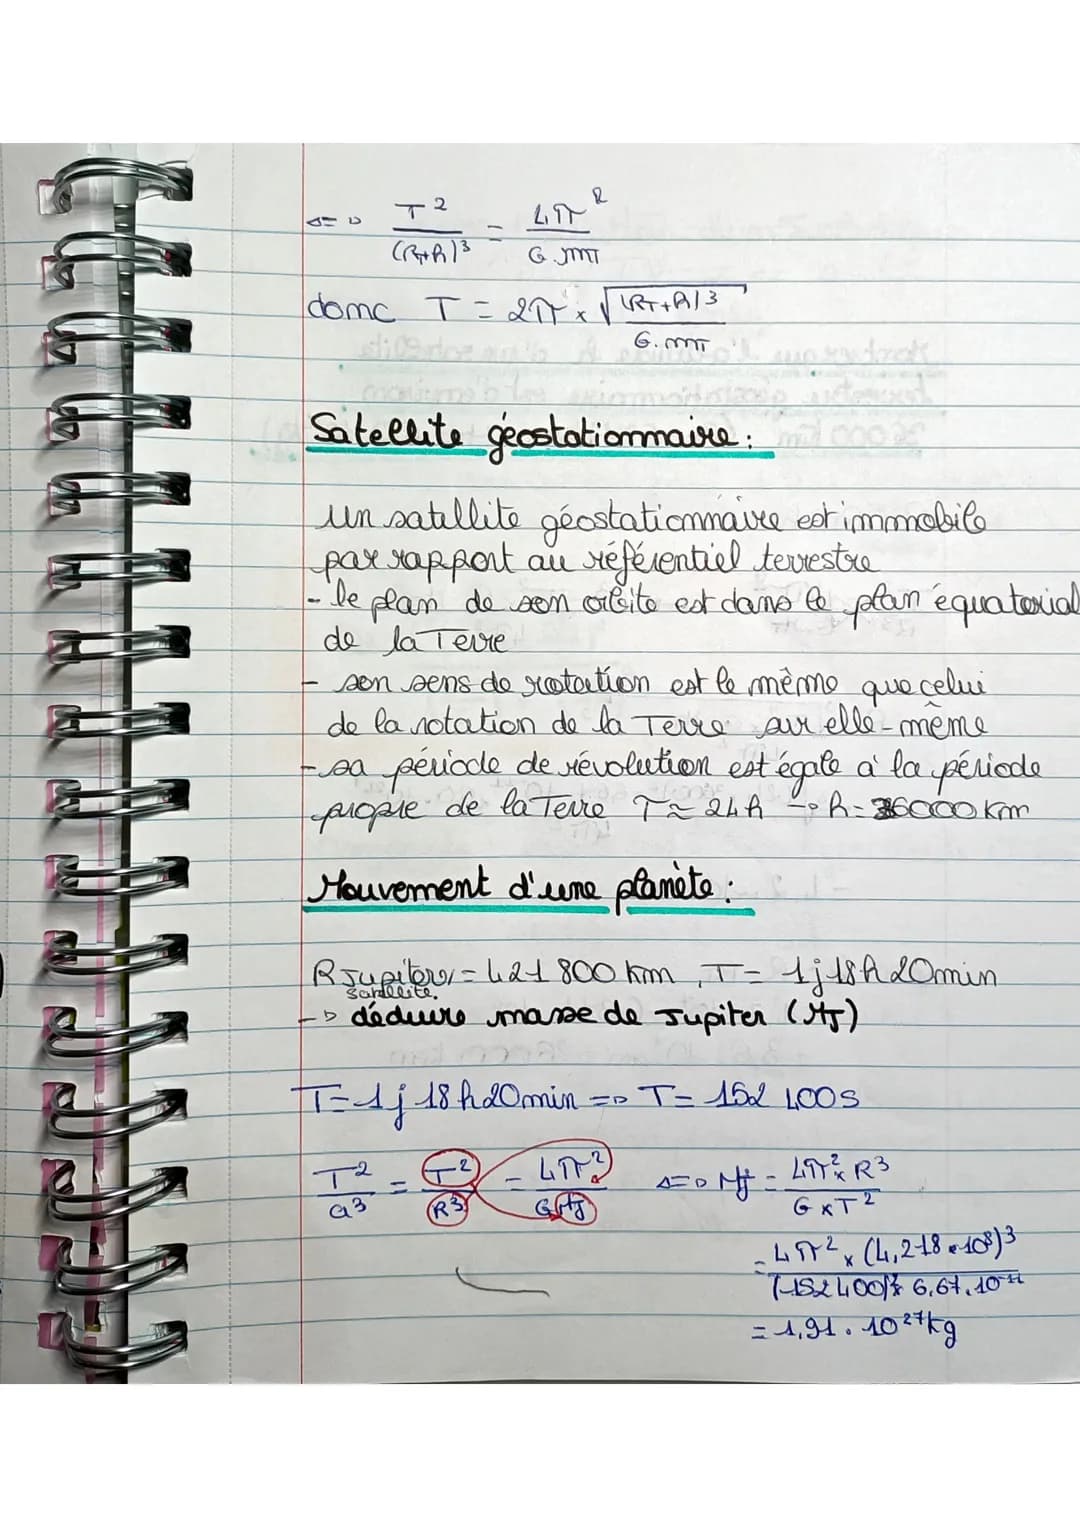 <=> T² / (RT+h)³ = 4π² / G.mT
donc T = 2π × √((RT+h)³ / G.mT)
Satellite géostationnaire :
un satellite géostationnaire est immobile
par rapport au référentiel terrestre
- le plan de son orbite est dans le plan équatorial
de la Terre
- son sens de rotation est le même que celui
de la rotation de la Terre sur elle-même
- sa période de révolution est égale à la période
propre de la Terre T ≈ 24h → h = 36000 km
Mouvement d'une planète :
R Jupiter = 421 800 km , T = 1j 18h 20min
satellite.
→ déduire masse de Jupiter (MJ)
T = 1j 18h 20min => T = 152 400s
T² / a³ = T² / R³ = 4π² / G MJ <=> MJ = 4π² × R³ / G × T²
= 4π² × (4,218 • 10⁸)³ / (152400)² × 6,67.10⁻¹¹
= 1,91 . 10²⁷ kg